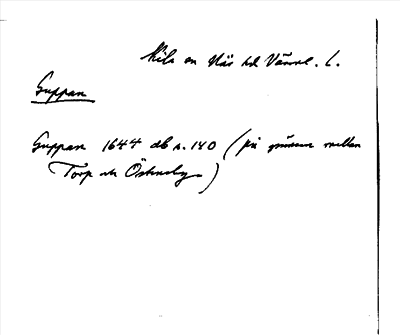 Kila sn När hd Värml. l.
Guppan
Guppan 1644 db s. 140 (på gränsen mellan
Torp och Östneby)